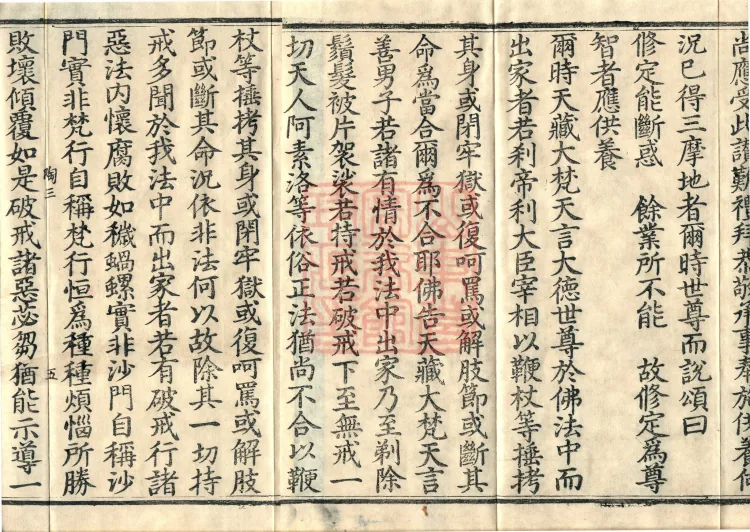 尚應受此讃歎禮拜恭敬承事奉施供養何
況已得三摩地者爾時世尊而說頌曰
修定能斷惑　餘業所不能　故修定爲尊
智者應供養
爾時天藏大梵天言大德世尊於佛法中而
出家者若刹帝利大臣宰相以鞭杖等捶拷
其身或閉牢獄或復呵罵或解肢節或斷其
命爲當合爾爲不合耶佛告天藏大梵天言
善男子若諸有情於我法中出家乃至剃除
鬚髮被片袈裟若持戒若破戒下至無戒一
切天人阿素洛等依俗正法猶尚不合以鞭
杖等捶拷其身或閉牢獄或復呵罵或解肢
節或斷其命況依非法何以故除其一切持
戒多聞於我法中而出家者若有破戒行諸
惡法内懷腐敗如穢蝸螺實非沙門自稱沙
門實非梵行自稱梵行恒爲種種煩惱所勝
陶三　五
敗壞傾覆如是破戒諸惡苾芻猶能示導一